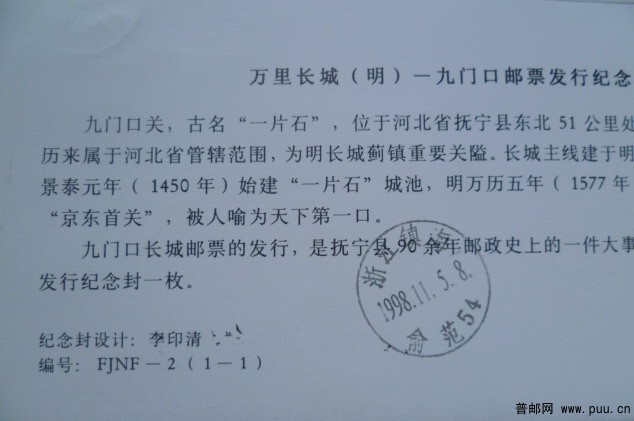 万里长城（明）－九门口邮票发行纪念
九门口关，古名“一片石”，位于河北省抚宁县东北51公里处
历来属于河北省管辖范围，为明长城蓟镇重要关隘。长城主线建于明
景泰元年（1450年）始建“一片石”城池，明万历五年（1577年
“京东首关”，被人喻为天下第一口。
九门口长城邮票的发行，是抚宁县90余年邮政史上的一件大事
发行纪念封一枚。
浙江镇
1998.11.5.8.
范54
纪念封设计：李印清
编号：FJNF－2（1－1）
普邮网 www.puu.cn